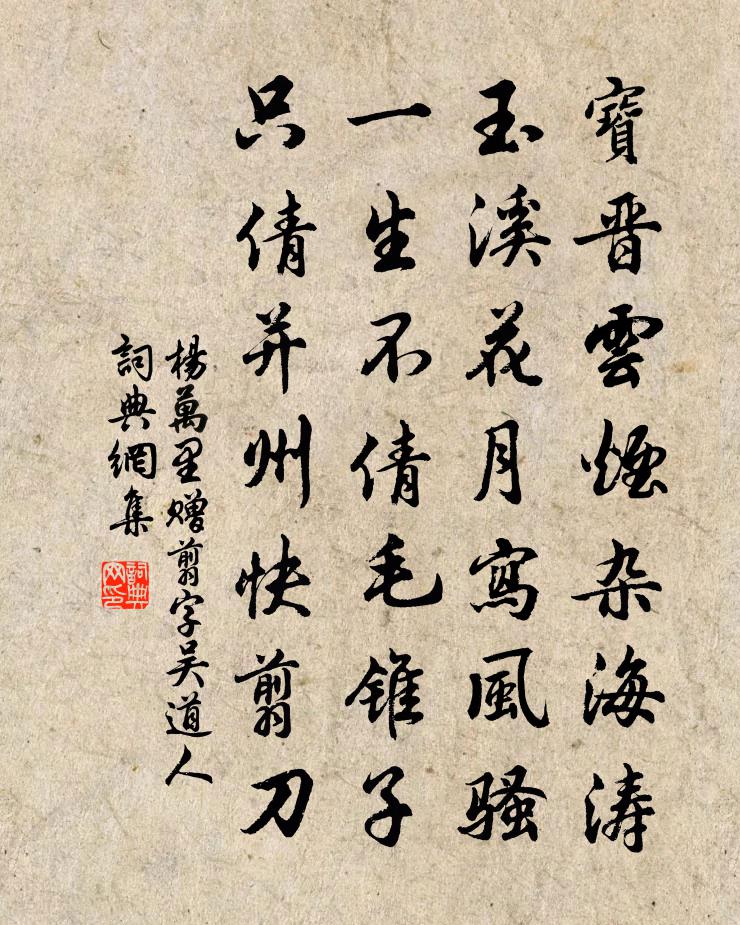 寶晋雲煙杂海涛
玉溪花月寫風騷
一生不倩毛錐子
只倩并州快翦刀
楊萬里赠翦字吴道人
詞典網集
詞典网印